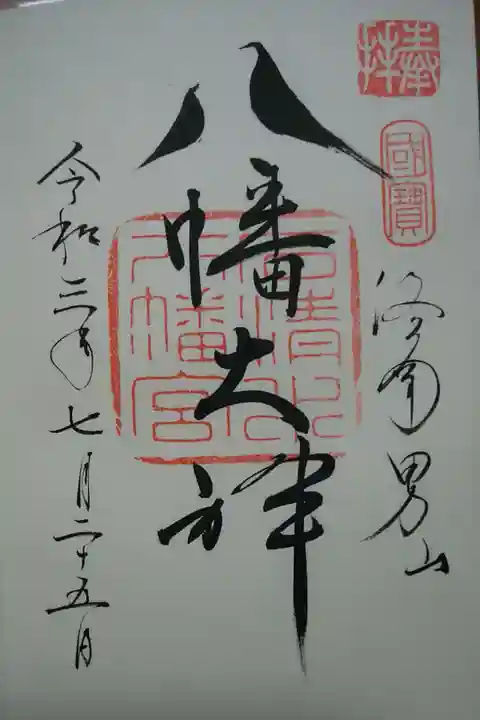 奉拝
國寶
洛南男山
八幡大神
石清水八幡宮
令和三年七月二十五日